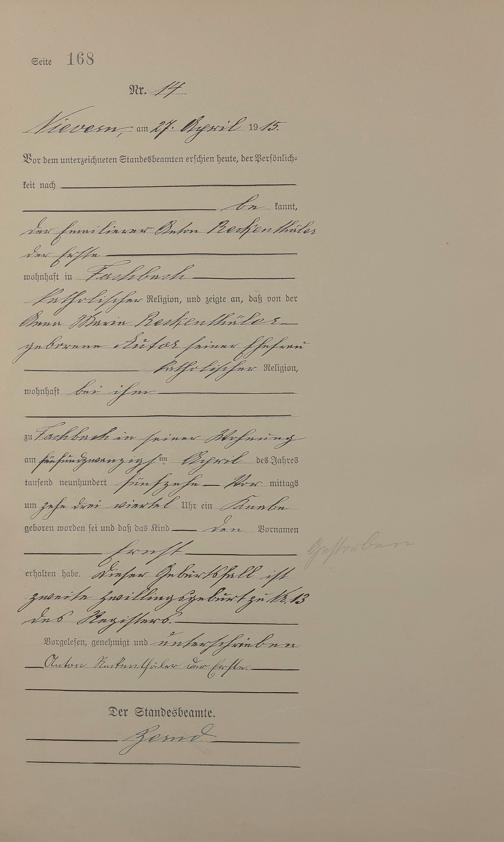 Seite 168
Nr. 14
Nievern, am 27. April 1915.
Vor dem unterzeichneten Standesbeamten erschien heute, der Persönlich-
keit nach
be kannt,
der Emailierer Anton Reckenthäler
der Erste
wohnhaft in Fachbach
katholischer Religion, und zeigte an, daß von der
Anna Maria Reckenthäler
geborene seiner Ehefrau
katholischer Religion,
wohnhaft bei ihm
zu Fachbach in seiner Wohnung
am fünfundzwanzigsten April des Jahres
tausend neunhundert fünfzehn Vor mittags
um zehn drei viertel Uhr ein Knabe
geboren worden sei und daß das Kind den Vornamen
Ernst
Gestorben
erhalten habe. Dieser Geburtsfall ist
zweite Zwillingsgeburt zu N. 13
des Registers.
Vorgelesen, genehmigt und unterschrieben
Anton Reckenthäler der Erste
Der Standesbeamte.